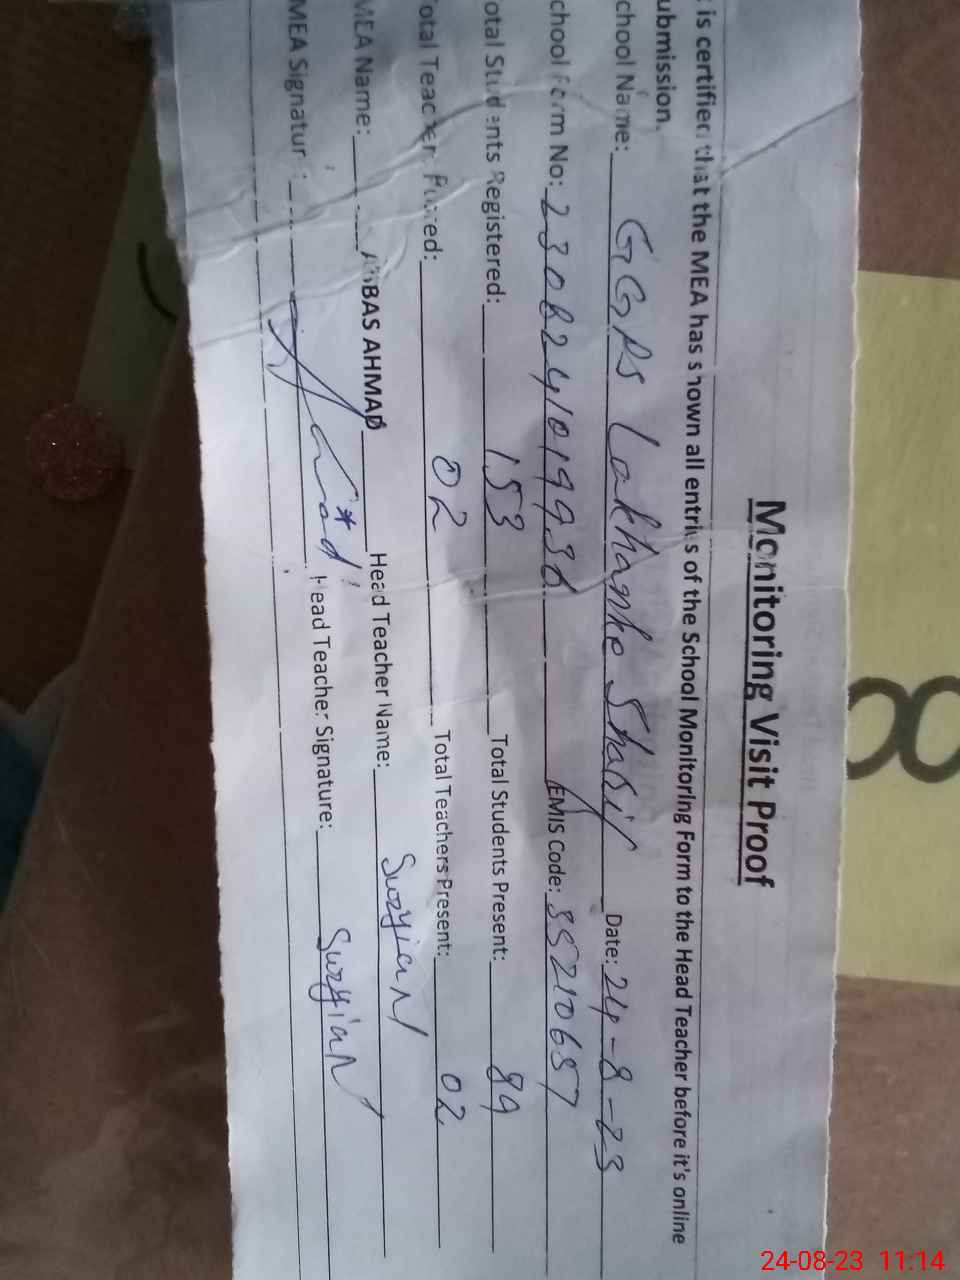 Monitoring Visit Proof
t is certified that the MEA has shown all entries of the School Monitoring Form to the Head Teacher before it's online
ubmission.
chool Name: GGPS Lakhanke Sharif Date: 24-8-23
chool Form No: 2308241019936 EMIS Code: 35210657
otal Students Registered: 153 Total Students Present: 89
otal Teachers Posted: 02 Total Teachers Present: 02
MEA Name: ABBAS AHMAD Head Teacher Name:
MEA Signature: Head Teacher Signature:
8
24-08-23 11:14